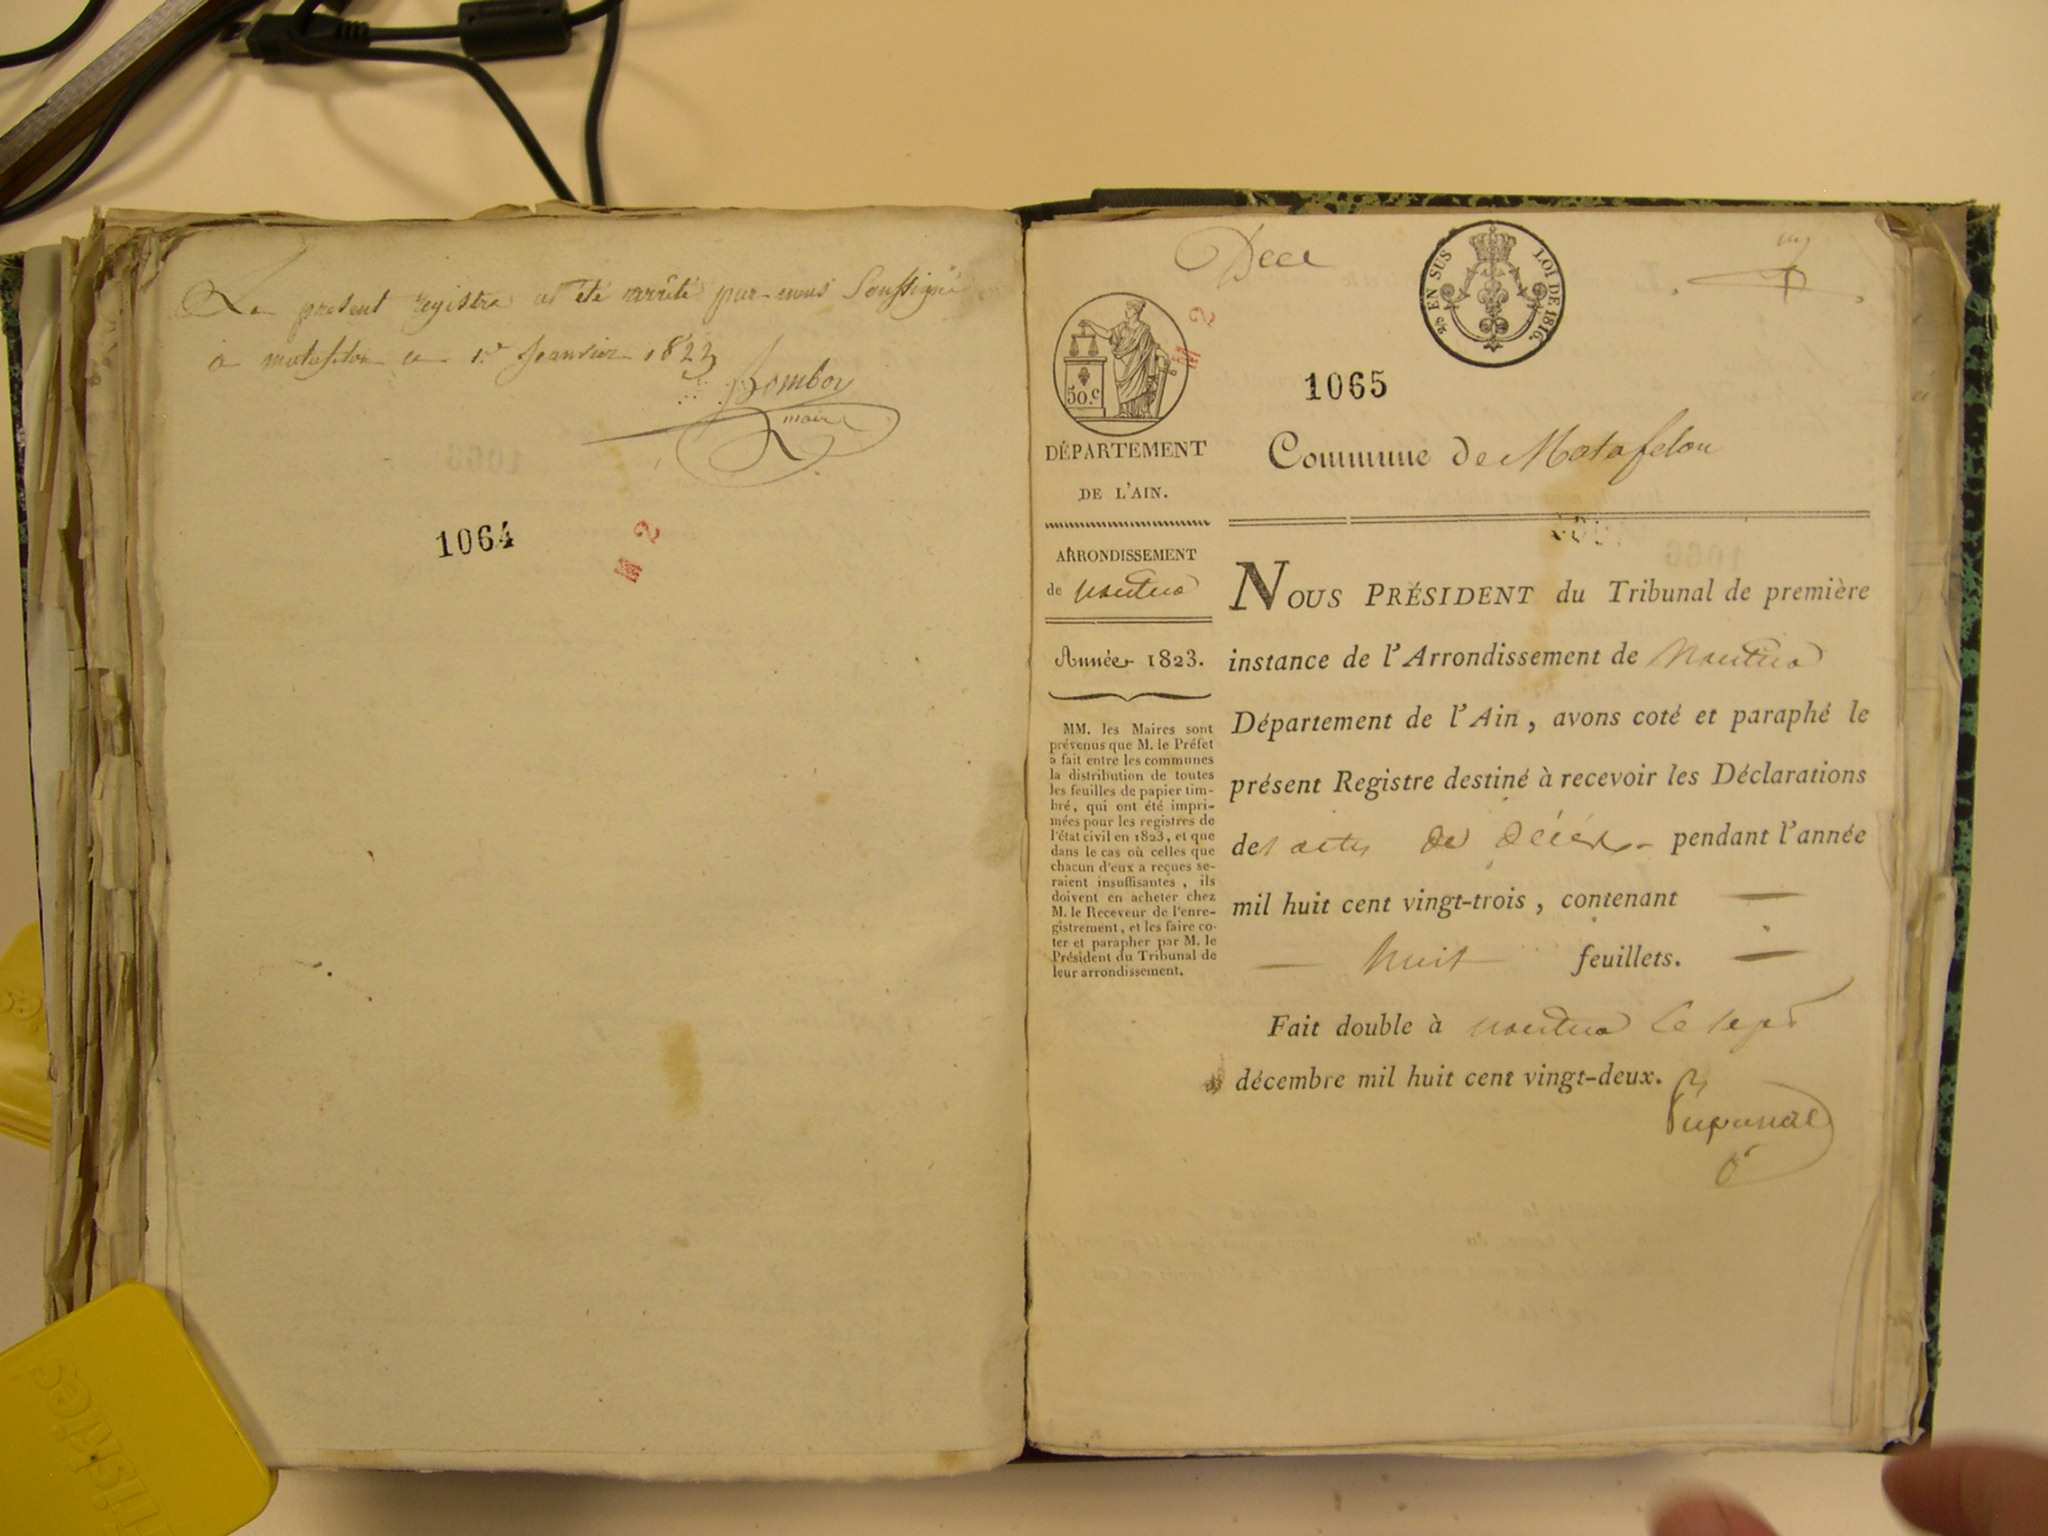 Le present registre a été arrêté par nous Soussigné
a matafelon le 1.er Janvier 1823
Bomboy
maire
1064
M 2
Dece
2/5 EN SUS LOI DE 1816.
M 2
50.c
1065
DÉPARTEMENT
DE L'AIN.
Commune de Matafelon
ARRONDISSEMENT
de Nantua
Année 1823.
MM. les Maires sont
prévenus que M. le Préfet
a fait entre les communes
la distribution de toutes
les feuilles de papier tim-
bré, qui ont été impri-
mées pour les registres de
l'état civil en 1823, et que
dans le cas où celles que
chacun d'eux a reçues se-
raient insuffisantes, ils
doivent en acheter chez
M. le Receveur de l'enre-
gistrement, et les faire co-
ter et parapher par M. le
Président du Tribunal de
leur arrondissement.
NOUS PRÉSIDENT du Tribunal de première
instance de l'Arrondissement de Nantua
Département de l'Ain, avons coté et paraphé le
présent Registre destiné à recevoir les Déclarations
des actes de décès pendant l'année
mil huit cent vingt-trois, contenant
huit feuillets.
Fait double à Nantua le sept
décembre mil huit cent vingt-deux.